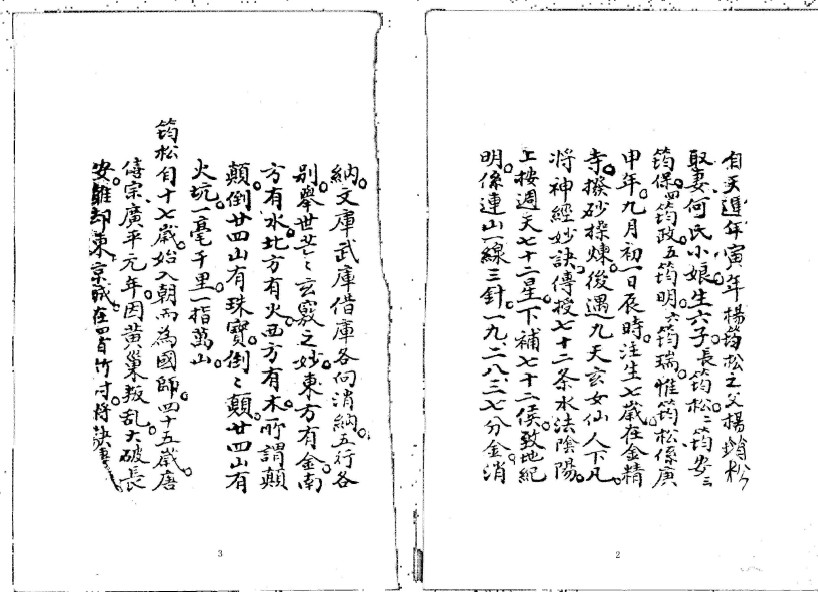 自天進年寅年楊筠松之父楊
取妻何氏小娘生六子長筠松二筠安三
筠保四筠政五筠明六筠瑞惟筠松係庚
申年九月初一日辰時注生七歲在金精
寺撥砂操煉後遇九天玄女仙人下凡
將神經妙訣傳授七十二条水法陰陽
上按週天七十二星下補七十二侯致地紀
明係連山一線三針一九二八三七分金消
2
納文庫武庫借庫各向消納五行各
別舉世芒〻玄竅之妙東方有金南
方有水北方有火西方有木所謂顛
顛倒廿四山有珠寶倒〻顛廿四山有
火坑一毫千里一指萬山
筠松旬十七歲始入朝而為國師四十五歲唐
僖宗廣平元年因黄巢叛乱大破長
安離却東京城在四百竹
3